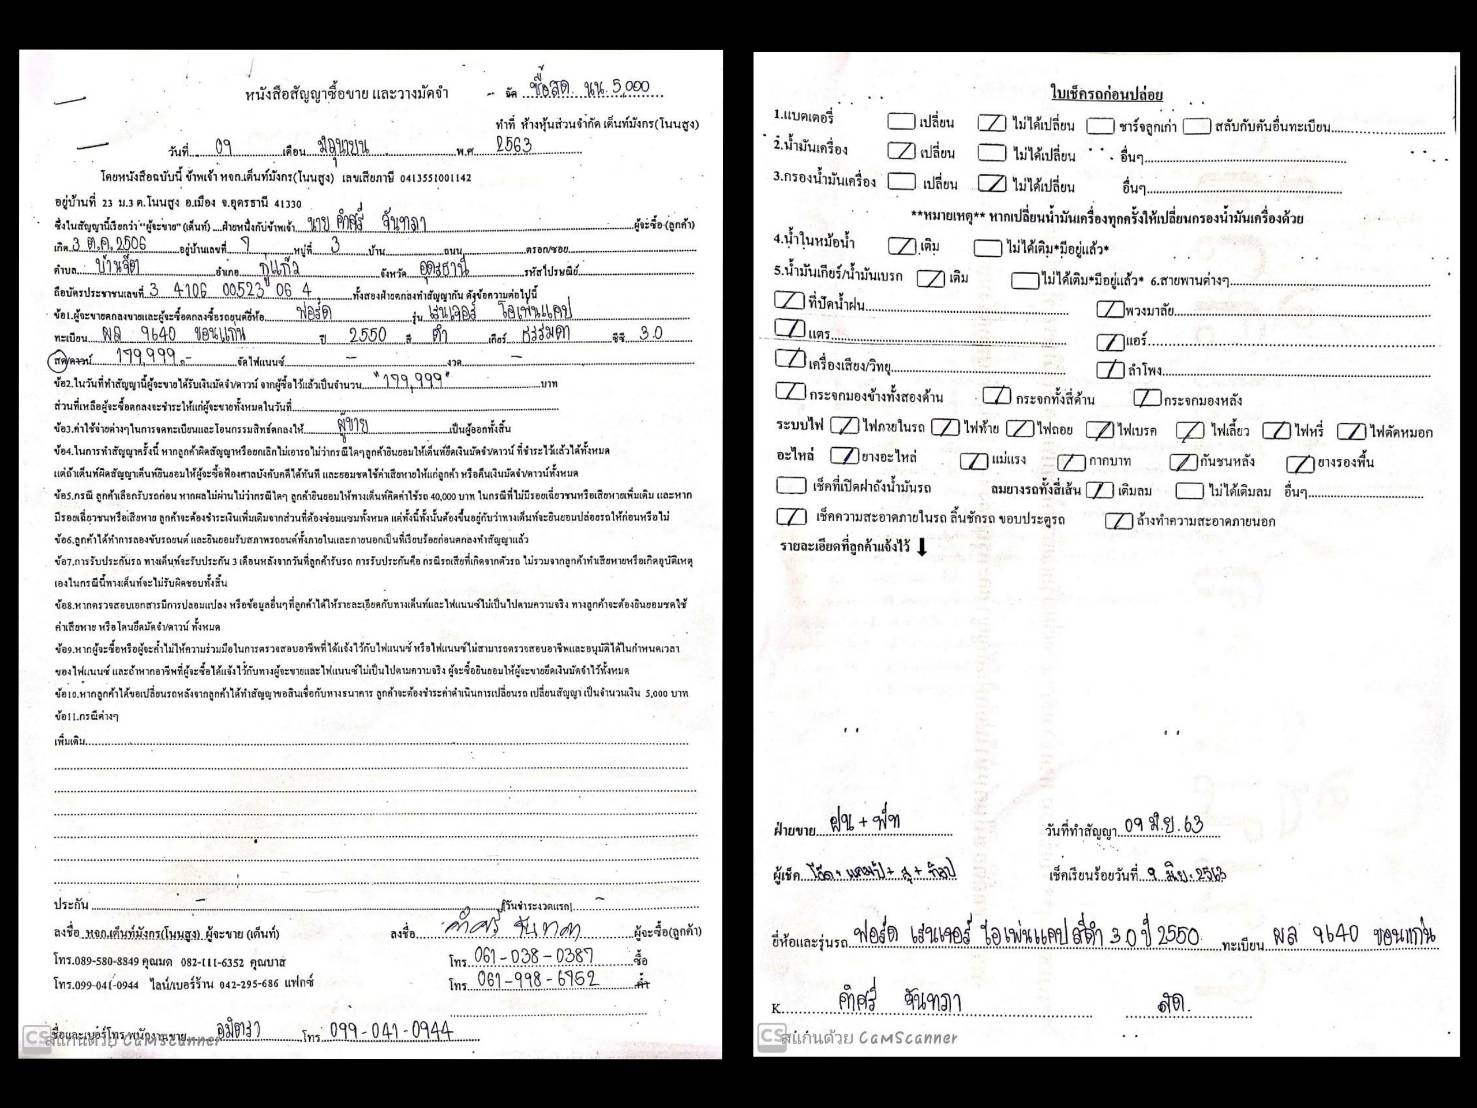 หนังสือสัญญาซื้อขาย และวางมัดจำ
จัด ซื้อสด นน. 5,000
ทำที่ ห้างหุ้นส่วนจำกัด เต็นท์มังกร(โนนสูง)
วันที่ 09 เดือน มิถุนายน พ.ศ 2563
โดยหนังสือฉบับนี้ ข้าพเจ้า หจก.เต็นท์มังกร(โนนสูง) เลขเสียภาษี 0413551001142
อยู่บ้านที่ 23 ม.3 ต.โนนสูง อ.เมือง จ.อุดรธานี 41330
ซึ่งในสัญญานี้เรียกว่า"ผู้จะขาย" (เต็นท์) ....ฝ่ายหนึ่งกับข้าพเจ้า นาย คำศรี จันทภา ผู้จะซื้อ (ลูกค้า)
เกิด 3 ต.ค. 2506 อยู่บ้านเลขที่ 9 หมู่ที่ 3 บ้าน ถนน ตรอก/ซอย
ตำบล บ้านจีต อำเภอ กู่แก้ว จังหวัด อุดรธานี รหัสไปรษณีย์
ถือบัตรประชาชนเลขที่ 3 4106 00523 06 4 ทั้งสองฝ่ายตกลงทำสัญญากัน ดังข้อความต่อไปนี้
ข้อ1.ผู้จะขายตกลงขายและผู้จะซื้อตกลงซื้อรถยนต์ยี่ห้อ ฟอร์ด รุ่น เรนเจอร์ โอเพ่นแคป
ทะเบียน ผล 9640 ขอนแก่น ปี 2550 สี ดำ เกียร์ ธรรมดา ซีซี 3.0
สด/ดาวน์ 179,999.- จัดไฟแนนซ์ - งวด -
ข้อ2.ในวันที่ทำสัญญานี้ผู้จะขายได้รับเงินมัดจำ/ดาวน์ จากผู้ซื้อไว้แล้วเป็นจำนวน "179,999" บาท
ส่วนที่เหลือผู้จะซื้อตกลงจะชำระให้แก่ผู้จะขายทั้งหมดในวันที่
ข้อ3.ค่าใช้จ่ายต่างๆในการจดทะเบียนและโอนกรรมสิทธ์ตกลงให้ ผู้ขาย เป็นผู้ออกทั้งสิ้น
ข้อ4.ในการทำสัญญาครั้งนี้ หากลูกค้าผิดสัญญาหรือยกเลิกไม่เอารถไม่ว่ากรณีใดๆลูกค้ายินยอมให้เต็นท์ยึดเงินมัดจำ/ดาวน์ ที่ชำระไว้แล้วได้ทั้งหมด
แต่ถ้าเต็นท์ผิดสัญญาเต็นท์ยินยอมให้ผู้จะซื้อฟ้องศาลบังคับคดีได้ทันที และยอมชดใช้ค่าเสียหายให้แก่ลูกค้า หรือคืนเงินมัดจำ/ดาวน์ทั้งหมด
ข้อ5.กรณี ลูกค้าเลือกรับรถก่อน หากผลไม่ผ่านไม่ว่ากรณีใดๆ ลูกค้ายินยอมให้ทางเต็นท์คิดค่าใช้รถ 40,000 บาท ในกรณีที่ไม่มีรอยเฉี่ยวชนหรือเสียหายเพิ่มเติม และหาก
มีรอยเฉี่ยวชนหรือเสียหาย ลูกค้าจะต้องชำระเงินเพิ่มเติมจากส่วนที่ต้องซ่อมแซมทั้งหมด แต่ทั้งนี้ทั้งนั้นต้องขึ้นอยู่กับว่าทางเต็นท์จะยินยอมปล่อยรถให้ก่อนหรือไม่
ข้อ6.ลูกค้าได้ทำการลองขับรถยนต์ และยินยอมรับสภาพรถยนต์ทั้งภายในและภายนอกเป็นที่เรียบร้อยก่อนตกลงทำสัญญาแล้ว
ข้อ7.การรับประกันรถ ทางเต็นท์จะรับประกัน 3 เดือนหลังจากวันที่ลูกค้ารับรถ การรับประกันคือ กรณีรถเสียที่เกิดจากตัวรถ ไม่รวมจากลูกค้าทำเสียหายหรือเกิดอุบัติเหตุ
เองในกรณีนี้ทางเต็นท์จะไม่รับผิดชอบทั้งสิ้น
ข้อ8.หากตรวจสอบเอกสารมีการปลอมแปลง หรือข้อมูลอื่นๆที่ลูกค้าได้ให้รายละเอียดกับทางเต็นท์และไฟแนนซ์ไม่เป็นไปตามความจริง ทางลูกค้าจะต้องยินยอมชดใช้
ค่าเสียหาย หรือโดนยึดมัดจำ/ดาวน์ ทั้งหมด
ข้อ9.หากผู้จะซื้อหรือผู้จะค้ำไม่ให้ความร่วมมือในการตรวจสอบอาชีพที่ได้แจ้งไว้กับไฟแนนซ์ หรือไฟแนนซ์ไม่สามารถตรวจสอบอาชีพและอนุมัติได้ในกำหนดเวลา
ของไฟแนนซ์ และถ้าหากอาชีพที่ผู้จะซื้อได้แจ้งไว้กับทางผู้จะขายและไฟแนนซ์ไม่เป็นไปตามความจริง ผู้จะซื้อยินยอมให้ผู้จะขายยึดเงินมัดจำไว้ทั้งหมด
ข้อ10.หากลูกค้าได้ขอเปลี่ยนรถหลังจากลูกค้าได้ทำสัญญาขอสินเชื่อกับทางธนาคาร ลูกค้าจะต้องชำระค่าดำเนินการเปลี่ยนรถ เปลี่ยนสัญญา เป็นจำนวนเงิน 5,000 บาท
ข้อ11.กรณีต่างๆ
เพิ่มเติม
ประกัน - (วันชำระงวดแรก) -
ลงชื่อ หจก.เต็นท์มังกร(โนนสูง) ผู้จะขาย (เต็นท์) ลงชื่อ คำศรี จันทภา ผู้จะซื้อ(ลูกค้า)
โทร.089-580-8849 คุณมด 082-111-6352 คุณบาส โทร 061-038-0387 ซื้อ
โทร.099-041-0944 ไลน์/เบอร์ร้าน 042-295-686 แฟกซ์ โทร 061-998-6952 ค้ำ
ชื่อและเบอร์โทร พนักงานขาย โทร 099-041-0944
CS สแกนด้วย CamScanner
ใบเช็ครถก่อนปล่อย
1.แบตเตอรี่ เปลี่ยน ไม่ได้เปลี่ยน ชาร์จลูกเก่า สลับกับคันอื่นทะเบียน
2.น้ำมันเครื่อง เปลี่ยน ไม่ได้เปลี่ยน อื่นๆ
3.กรองน้ำมันเครื่อง เปลี่ยน ไม่ได้เปลี่ยน อื่นๆ
**หมายเหตุ** หากเปลี่ยนน้ำมันเครื่องทุกครั้งให้เปลี่ยนกรองน้ำมันเครื่องด้วย
4.น้ำในหม้อน้ำ เติม ไม่ได้เติม*มีอยู่แล้ว*
5.น้ำมันเกียร์/น้ำมันเบรก เติม ไม่ได้เติม*มีอยู่แล้ว* 6.สายพานต่างๆ
ที่ปัดน้ำฝน พวงมาลัย
แตร แอร์
เครื่องเสียง/วิทยุ ลำโพง
กระจกมองข้างทั้งสองด้าน กระจกทั้งสี่ด้าน กระจกมองหลัง
ระบบไฟ ไฟภายในรถ ไฟท้าย ไฟถอย ไฟเบรค ไฟเลี้ยว ไฟหรี่ ไฟตัดหมอก
อะไหล่ ยางอะไหล่ แม่แรง กากบาท กันชนหลัง ยางรองพื้น
เช็คที่เปิดฝาถังน้ำมันรถ ลมยางรถทั้งสี่เส้น เติมลม ไม่ได้เติมลม อื่นๆ
เช็คความสะอาดภายในรถ ลิ้นชักรถ ขอบประตูรถ ล้างทำความสะอาดภายนอก
รายละเอียดที่ลูกค้าแจ้งไว้ ⬇
ฝ่ายขาย ฝน + วันที่ทำสัญญา 09 มิ.ย. 63
ผู้เช็ค เช็คเรียบร้อยวันที่ 9 มิ.ย. 2563
ยี่ห้อและรุ่นรถ ฟอร์ด เรนเจอร์ โอเพ่นแคป สีดำ 3.0 ปี 2550 ทะเบียน ผล 9640 ขอนแก่น
K คำศรี จันทภา สด.
CS สแกนด้วย CamScanner